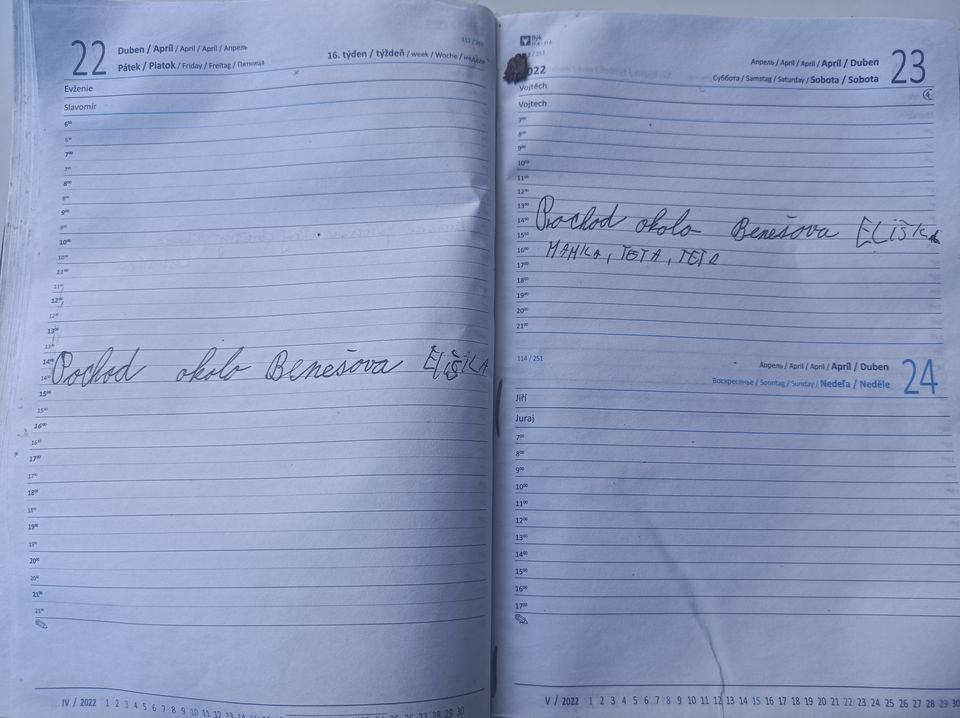 22 Duben / Apríl / April / April / Апрель
Pátek / Piatok / Friday / Freitag / Пятница
16. týden / týždeň / week / Woche / неделя
Evženie
Slavomír
6⁰⁰
6³⁰
7⁰⁰
7³⁰
8⁰⁰
8³⁰
9⁰⁰
9³⁰
10⁰⁰
10³⁰
11⁰⁰
11³⁰
12⁰⁰
12³⁰
13⁰⁰
13³⁰
14⁰⁰
Pochod okolo Benešova ELIŠKA
14³⁰
15⁰⁰
15³⁰
16⁰⁰
16³⁰
17⁰⁰
17³⁰
18⁰⁰
18³⁰
19⁰⁰
19³⁰
20⁰⁰
20³⁰
21⁰⁰
21³⁰
IV / 2022 1 2 3 4 5 6 7 8 9 10 11 12 13 14
28 29 30
Býk
Апрель / April / April / Apríl / Duben 23
Суббота / Samstag / Saturday / Sobota / Sobota
Vojtěch
Vojtech
7⁰⁰
8⁰⁰
9⁰⁰
10⁰⁰
11⁰⁰
12⁰⁰
13⁰⁰
14⁰⁰
Pochod okolo Benešova ELIŠKA
15⁰⁰
16⁰⁰
MAMKA, TETA, TETA
17⁰⁰
18⁰⁰
19⁰⁰
20⁰⁰
21⁰⁰
114 / 251
Апрель / April / April / Apríl / Duben 24
Воскресенье / Sonntag / Sunday / Nedeľa / Neděle
Jiří
Juraj
7⁰⁰
8⁰⁰
9⁰⁰
10⁰⁰
11⁰⁰
12⁰⁰
13⁰⁰
14⁰⁰
15⁰⁰
16⁰⁰
17⁰⁰
V / 2022 1 2 3 4 5 6 7 8 9 10 11 12 13 14 15 16 17 18 19 20 21 22 23 24 25 26 27 28 29 30